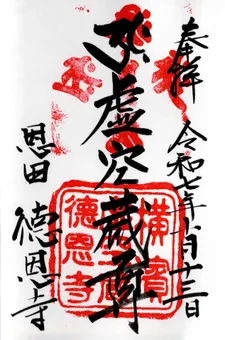 奉拝
令和七年
月十三日
虚空蔵尊
恩田
徳恩寺
横濱
徳恩寺